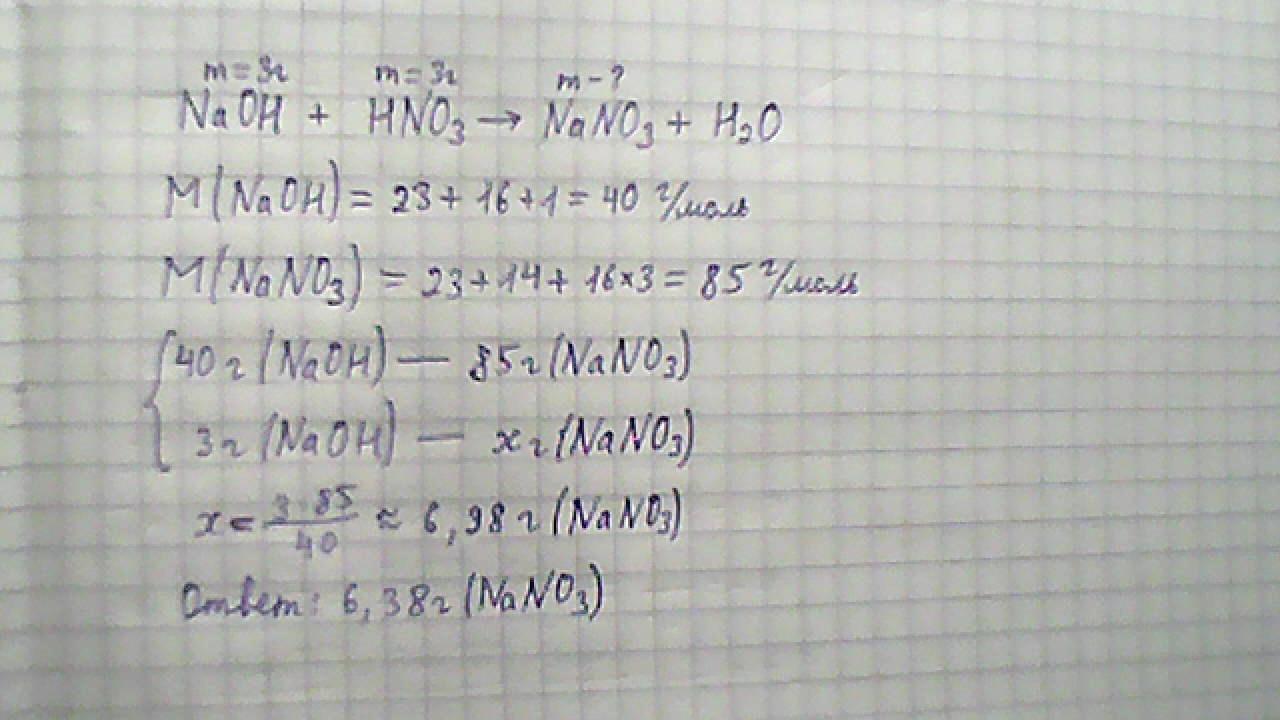 m=3г m=3г m-?
NaOH + HNO₃ → NaNO₃ + H₂O
M(NaOH) = 23 + 16 + 1 = 40 г/моль
M(NaNO₃) = 23 + 14 + 16×3 = 85 г/моль
40 г (NaOH) — 85 г (NaNO₃)
3 г (NaOH) — x г (NaNO₃)
x = 3·85/40 ≈ 6,98 г (NaNO₃)
Ответ: 6,38 г (NaNO₃)